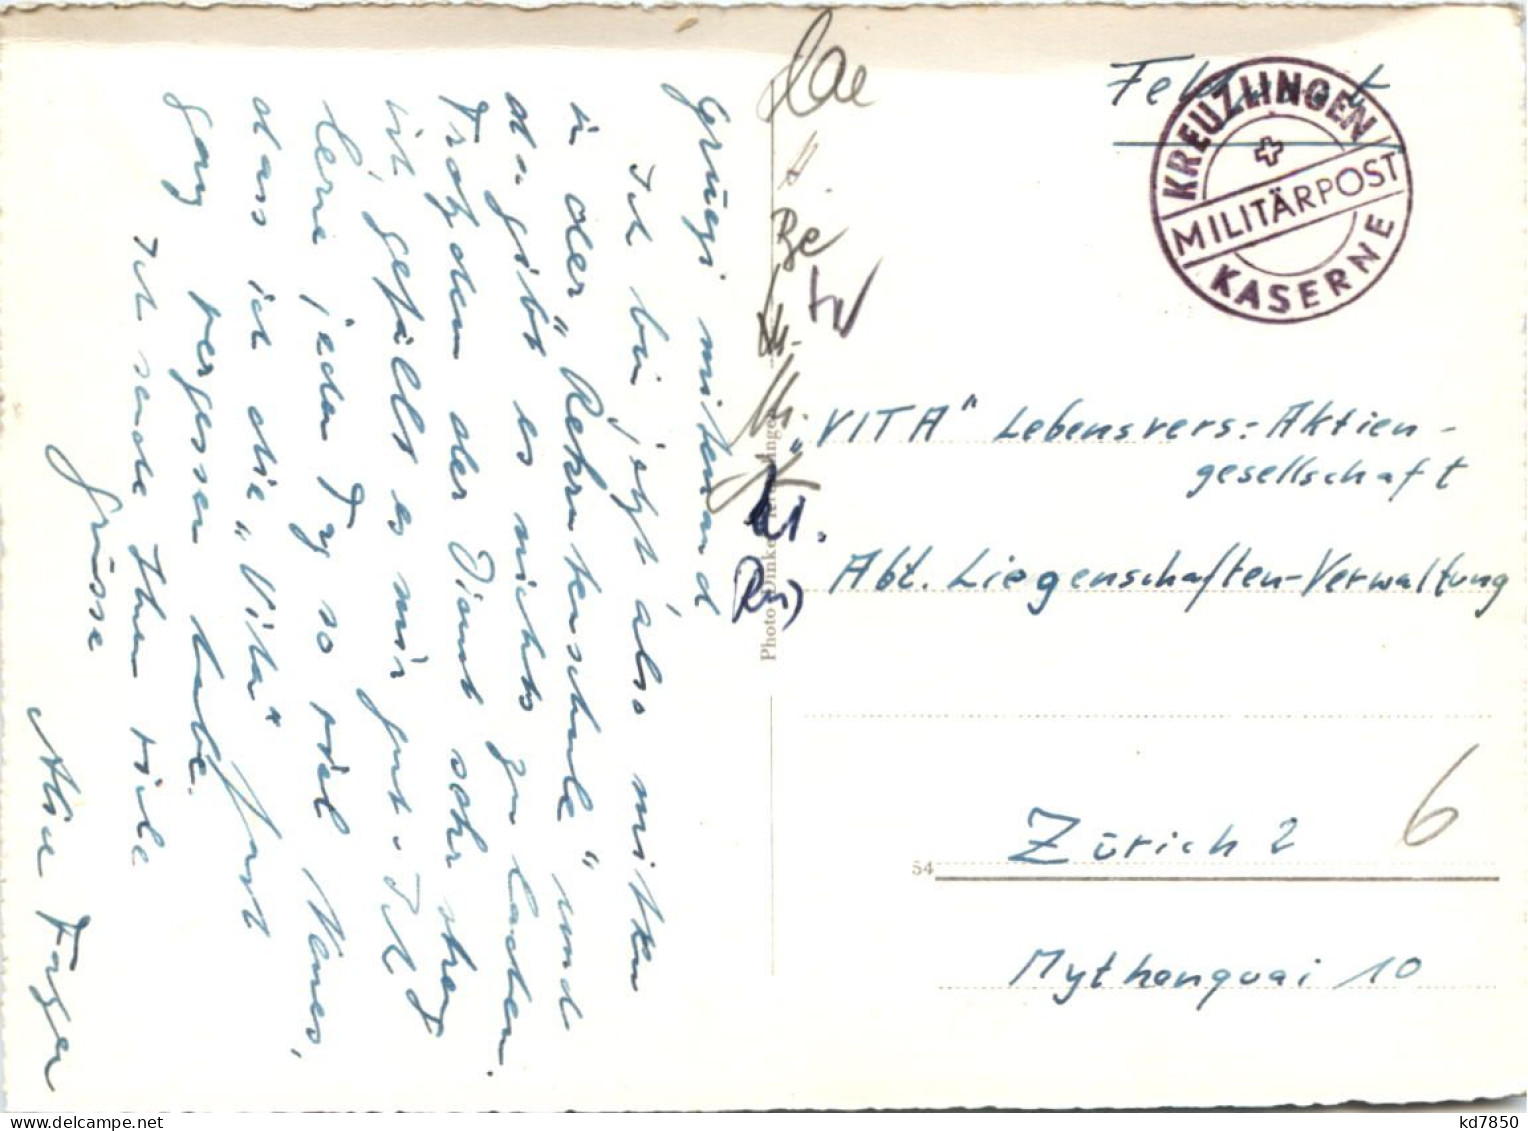 Grüezi mitenand
Ich bin jetzt also mitten
in der „Rekrutenschule" und
da gibt es nichts zu lachen.
Trotzdem der Dienst sehr streng
ist gefällt es mir gut. Ich
lerne jeden Tag so viel Neues,
dass ich die „Vita" fast
ganz vergessen habe.
Ich sende Ihnen viele
Grüsse
Feldpost
KREUZLINGEN
MILITÄRPOST
KASERNE
„VITA" Lebensvers.-Aktien-
gesellschaft
Abt. Liegenschaften-Verwaltung
Zürich 2
Mythenquai 10
6
54
Photo
Be
kd7850